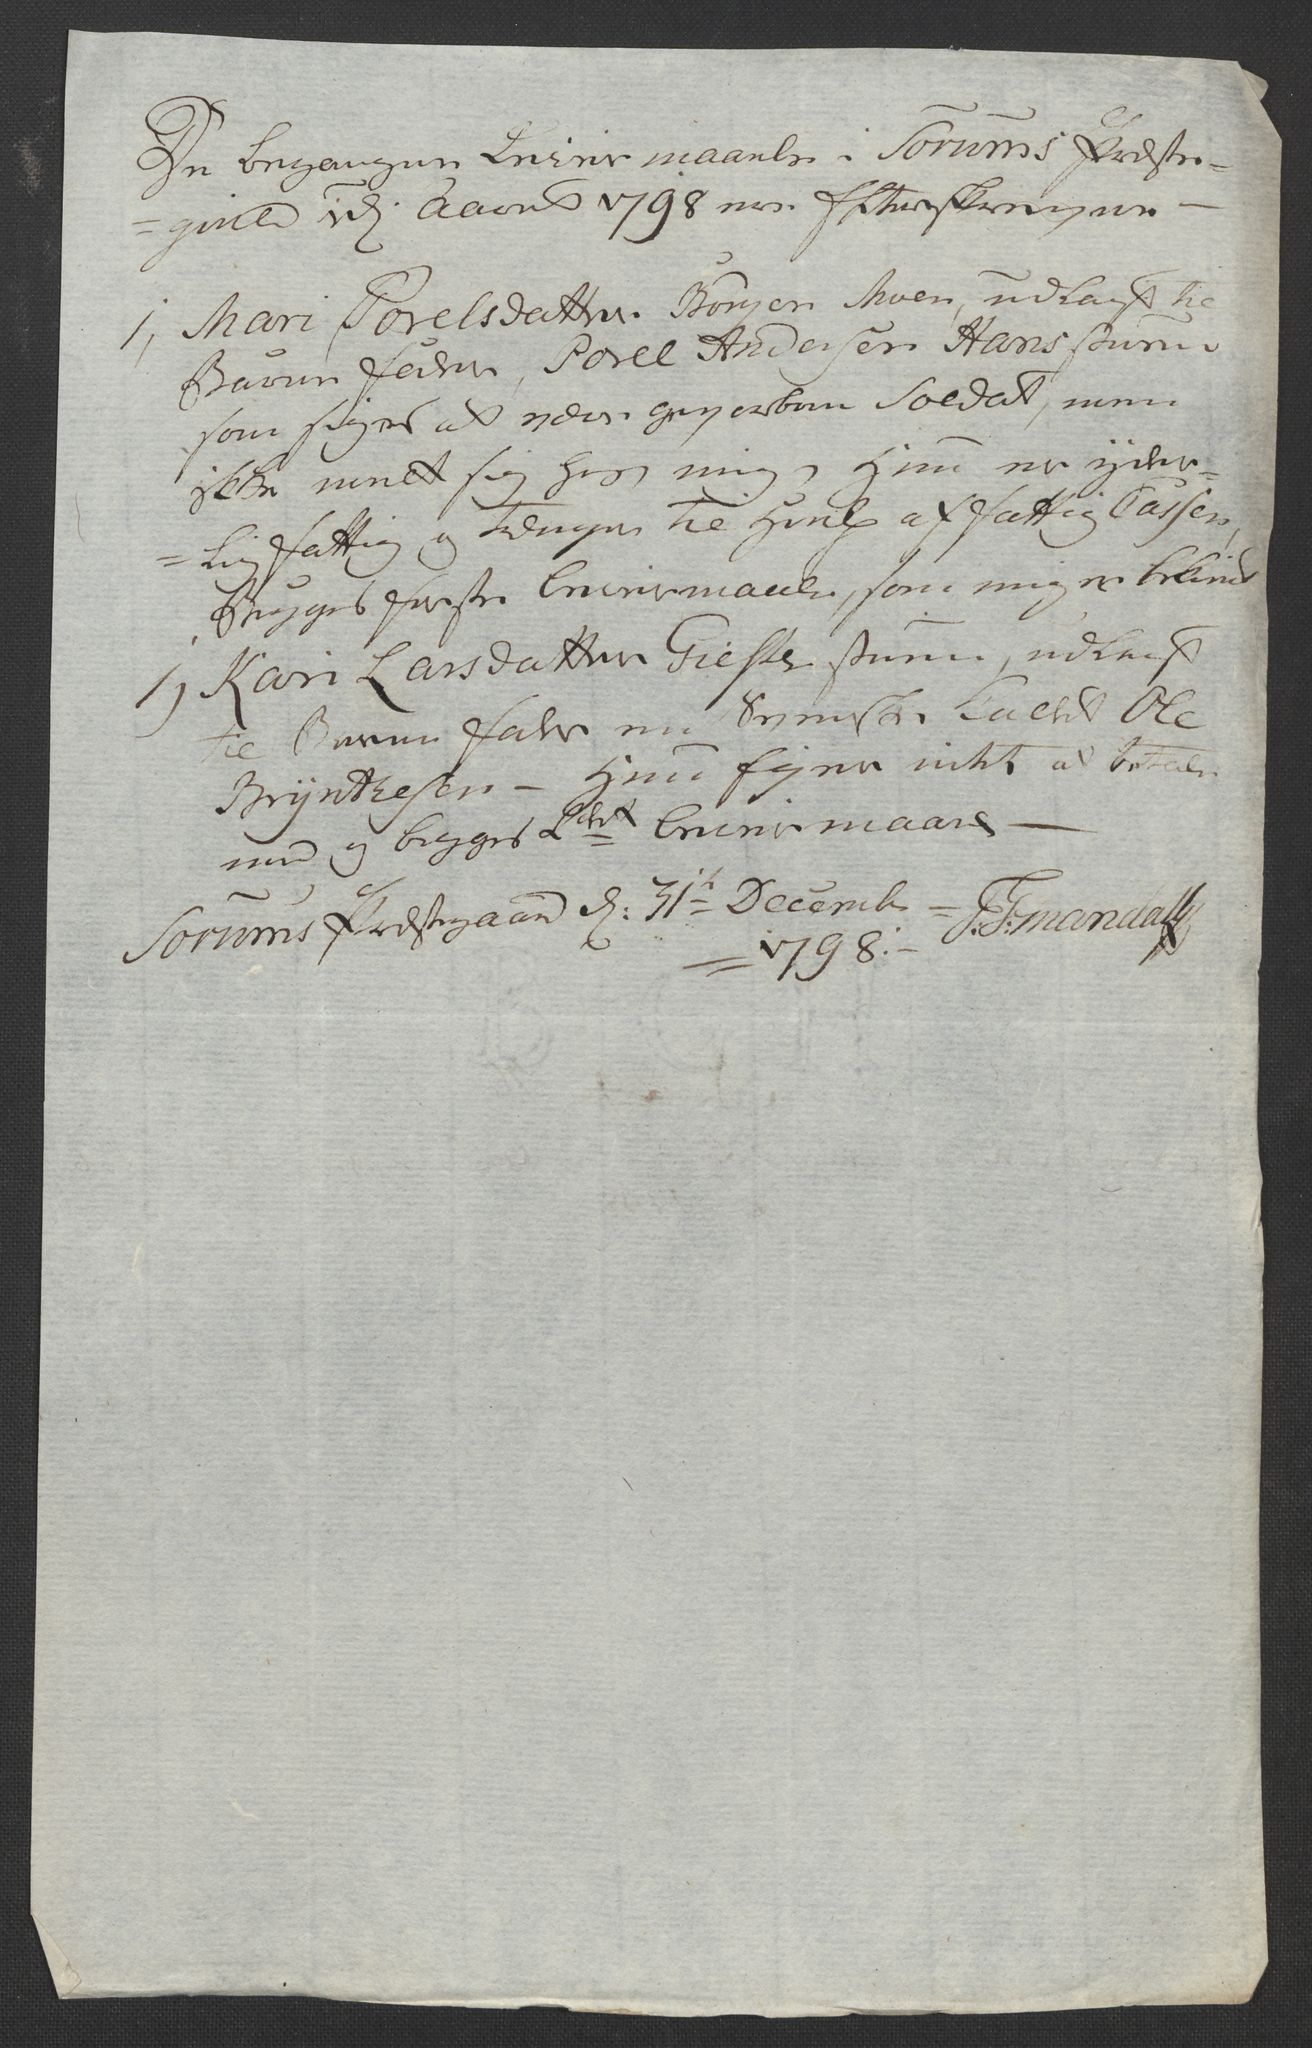 De begangne Leiermaale i Sørums Præste-
=gield i Aaret 1798 ere Efterskrevne —
1, Mari Povelsdatter Borgen Moen, udlagt til
Barne fader, Povel Andersen Hans
som siges at være geworben Soldat, men
ikke meldt sig hos mig, Hun er yder-
=lig fattig og trænger til Hielp af fattig Cassen,
Begges første Leiermaale, som mig er bekiendt
1) Kari Larsdatter udlagt
til Barne fader en Svensk Ole
Bryntesen — Hun eyer intet at betale
med og begges Leiermaal —
Sørums Præstegaard d: 31te Decembr = J: F: mandall
= 1798 :-